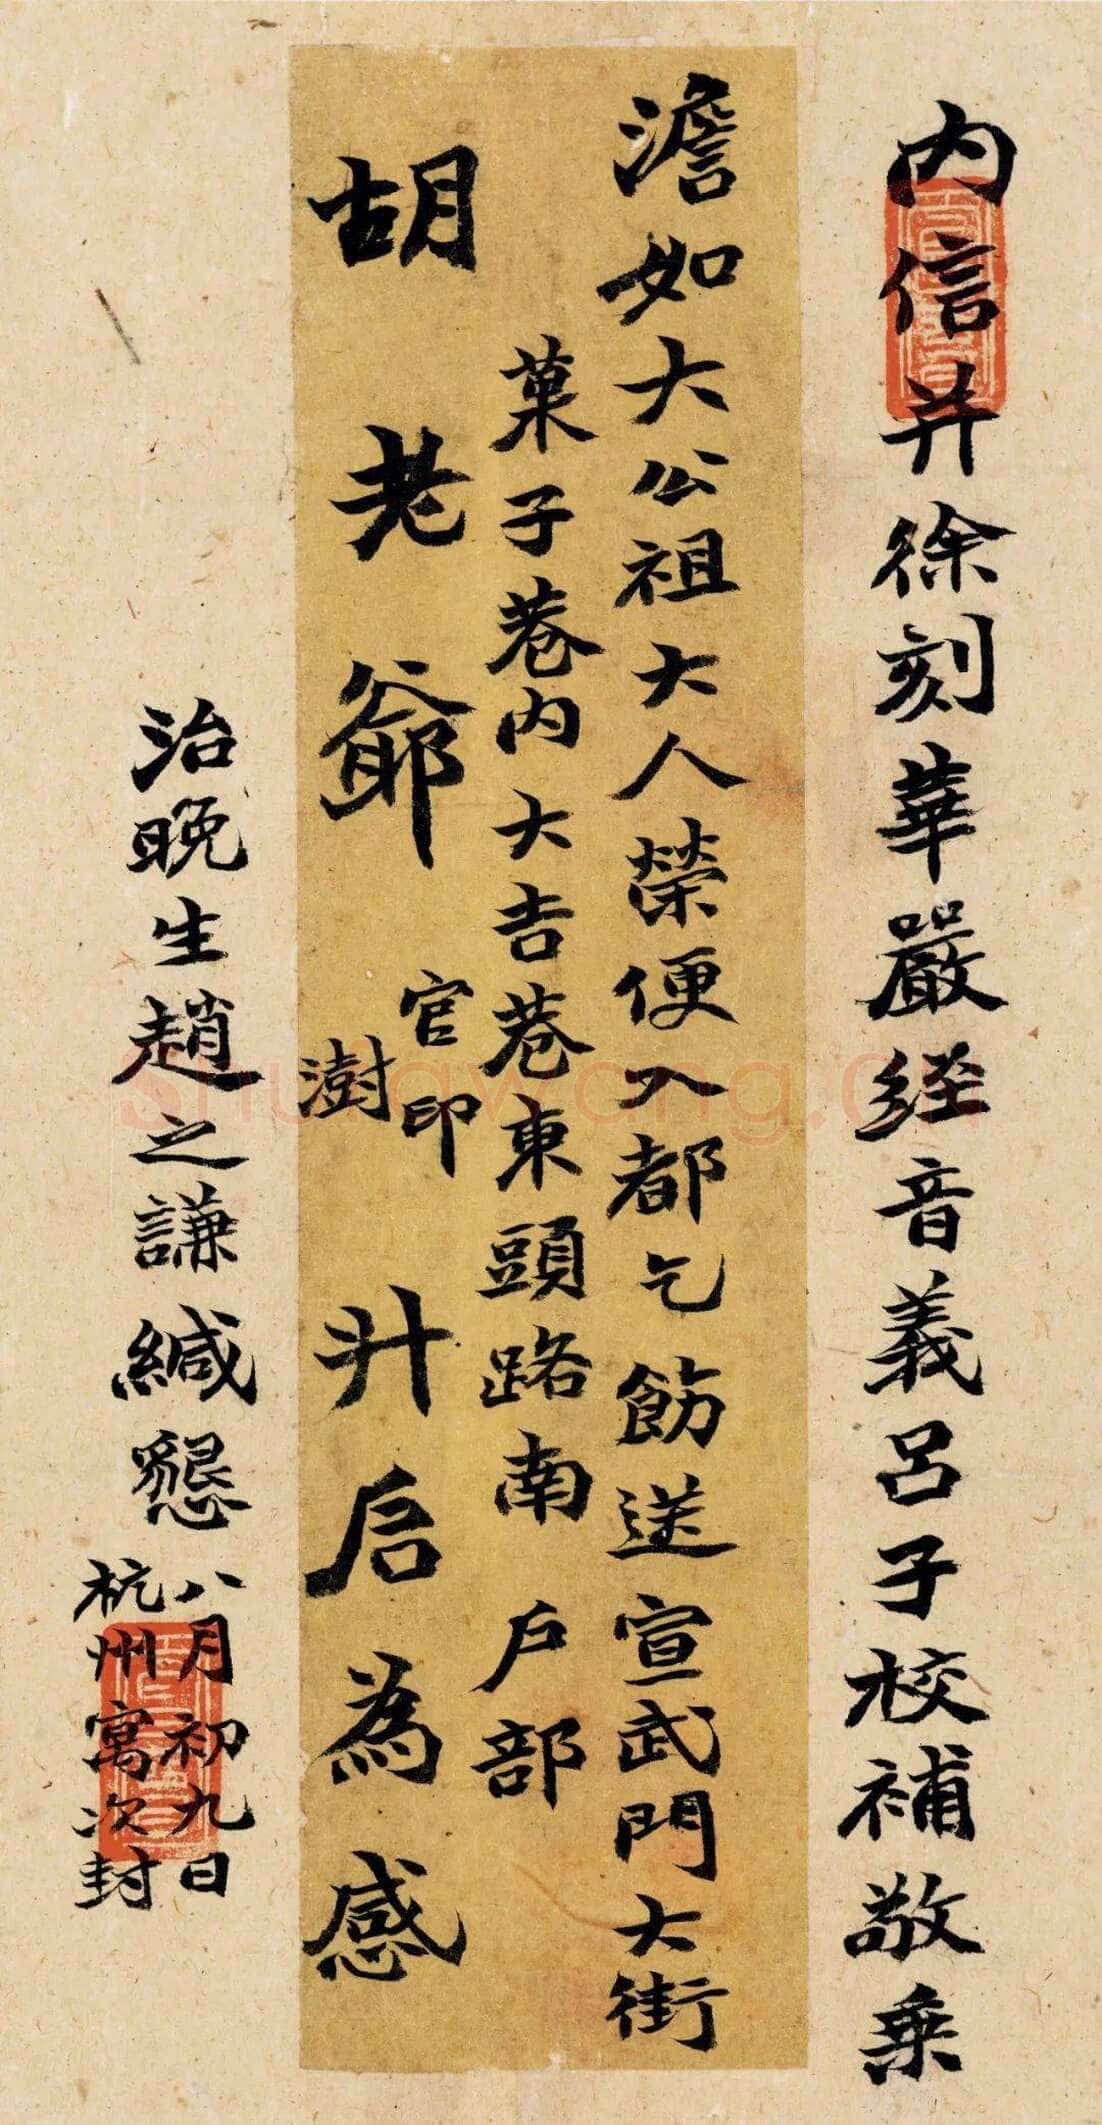 内信并徐刻華嚴經音義呂子校補敬乗
澹如大公祖大人榮便入都乞飭送宣武門大街
菓子巷内大吉巷東頭路南戶部
胡老爺官印澍升启為感
治晚生趙之謙緘懇
八月初九日
杭州寓次封